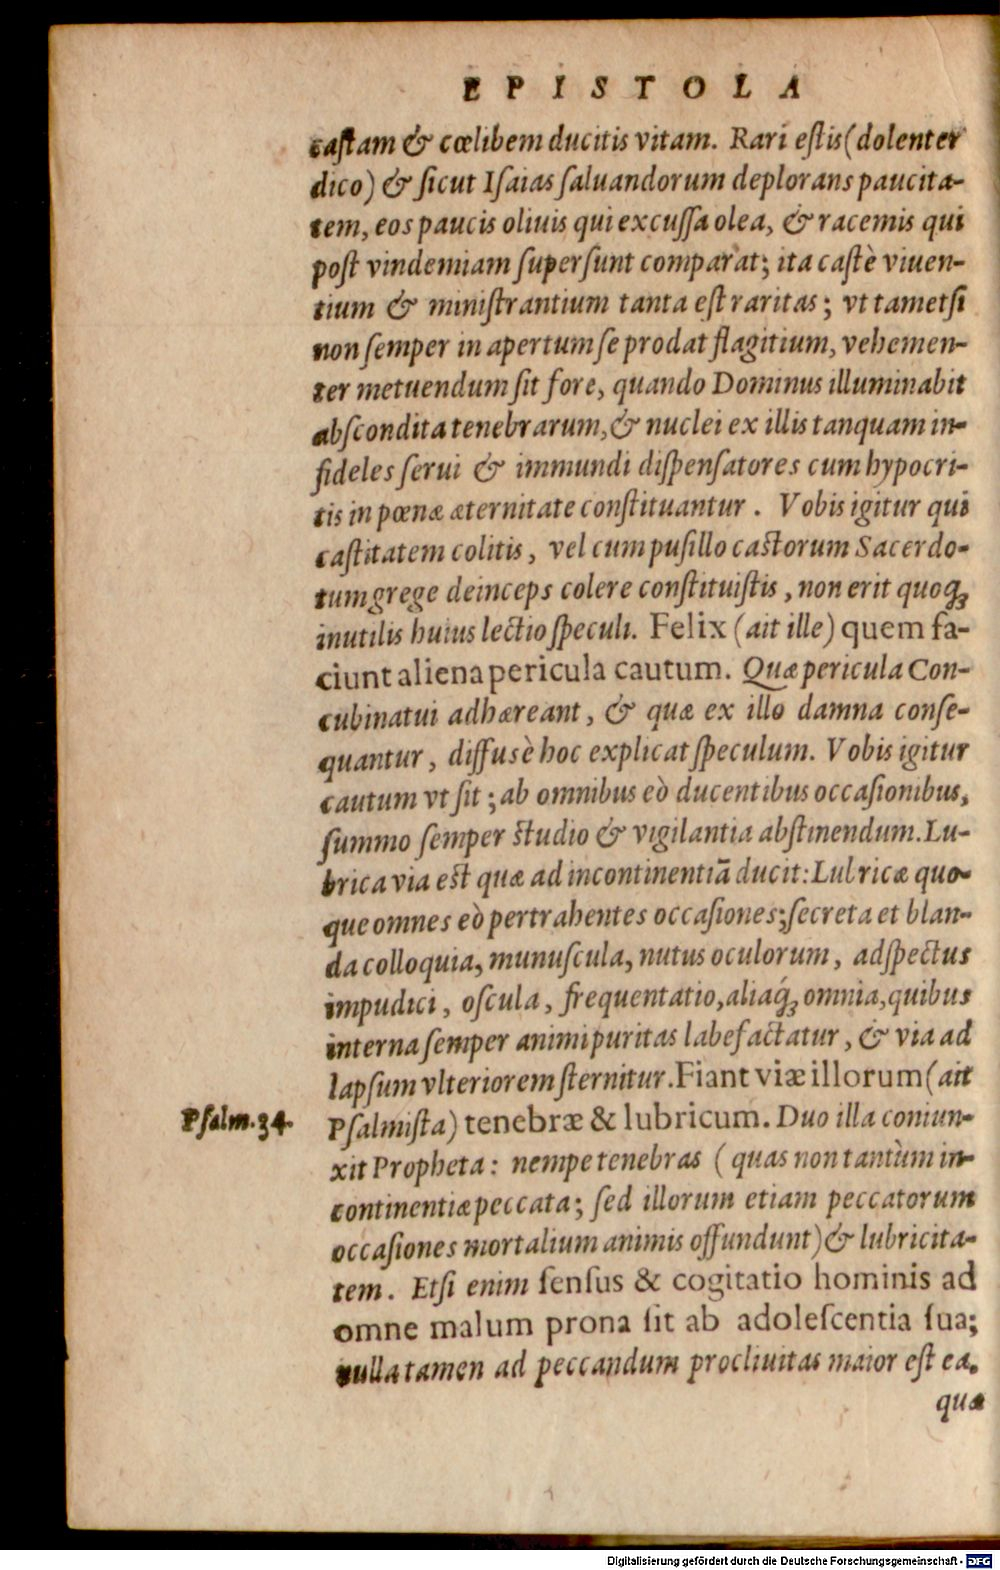 EPISTOLA
castam & cœlibem ducitis vitam. Rari estis (dolenter
dico) & sicut Isaias saluandorum deplorans paucita-
tem, eos paucis oliuis qui excussa olea, & racemis qui
post vindemiam supersunt comparat; ita castè viuen-
tium & ministrantium tanta est raritas; vt tametsi
non semper in apertum se prodat flagitium, vehemen-
ter metuendum sit fore, quando Dominus illuminabit
abscondita tenebrarum, & nuclei ex illis tanquam in-
fideles serui & immundi dispensatores cum hypocri-
tis in pœnæ æternitate constituantur. Vobis igitur qui
castitatem colitis, vel cum pusillo castorum Sacerdo-
tum grege deinceps colere constituistis, non erit quoq́ꝫ
inutilis huius lectio speculi. Felix (ait ille) quem fa-
ciunt aliena pericula cautum. Quæ pericula Con-
cubinatui adhæreant, & quæ ex illo damna conse-
quantur, diffusè hoc explicat speculum. Vobis igitur
cautum vt sit; ab omnibus eò ducentibus occasionibus,
summo semper studio & vigilantia abstinendum. Lu-
brica via est quæ ad incontinentiã ducit: Lubricæ quo-
que omnes eò pertrahentes occasiones; secreta et blan-
da colloquia, munuscula, nutus oculorum, adspectus
impudici, oscula, frequentatio, aliaq́ꝫ omnia, quibus
interna semper animi puritas labefactatur, & via ad
lapsum vlteriorem sternitur. Fiant viæ illorum (ait
Psalm. 34.
Psalmista) tenebræ & lubricum. Duo illa coniun-
xit Propheta: nempe tenebras (quas non tantùm in-
continentiæ peccata; sed illorum etiam peccatorum
occasiones mortalium animis offundunt) & lubricita-
tem. Etsi enim sensus & cogitatio hominis ad
omne malum prona sit ab adolescentia sua;
nulla tamen ad peccandum procliuitas maior est ea,
quæ
Digitalisierung gefördert durch die Deutsche Forschungsgemeinschaft - DFG